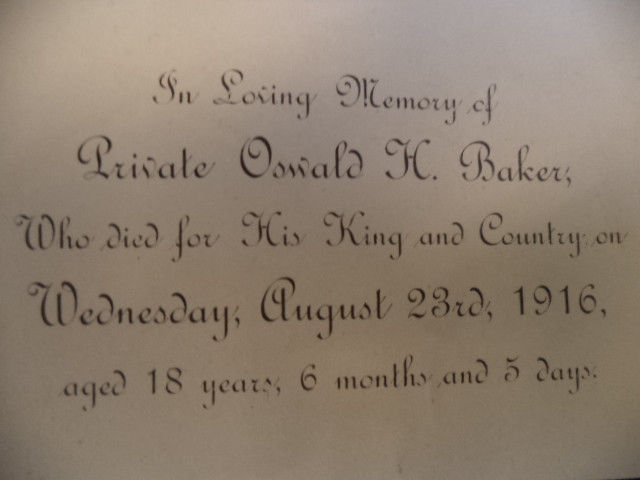 In Loving Memory of
Private Oswald H. Baker,
Who died for His King and Country on
Wednesday, August 23rd, 1916,
aged 18 years, 6 months and 5 days.